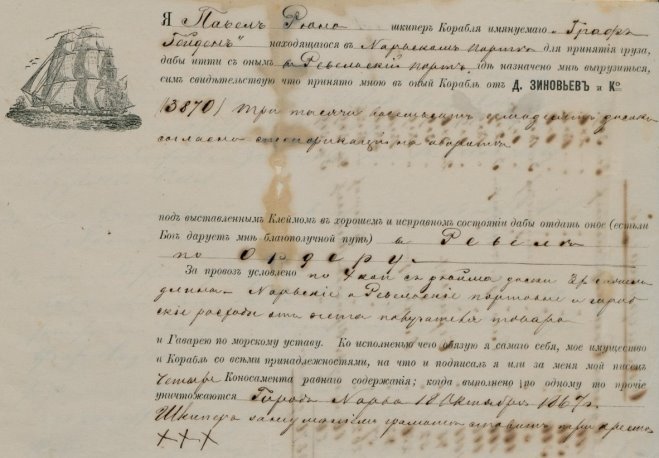 Я Павелъ Рюна шкиперъ Корабля имянуемаго „Графъ
Гейденъ“ находящагося въ Нарвскомъ портѣ для принятія груза,
дабы итти съ онымъ в Ревельскій портъ гдѣ назначено мнѣ выгрузиться,
симъ свидѣтельствую что принято мною въ оный Корабль отъ Д. ЗИНОВЬЕВЪ и Ко
(3870) три тысячи восемьсотъ семьдесятъ досокъ
согласно спецификаціи на оборотѣ
подъ выставленнымъ Клеймомъ въ хорошемъ и исправномъ состояніи дабы отдать оное (естьли
Богъ даруетъ мнѣ благополучной путь) в Ревелѣ
по Ордеру.
За провозъ условлено по 4 коп съ доски
длина Нарвскіе и Ревельскіе портовые и
расходы отъ счета получателя товара
и Гаварею по морскому уставу. Ко исполненью чего обязую я самаго себя, мое имущество
и Корабль со всѣми принадлежностями, на что и подписалъ я или за меня мой писецъ
четыре Коносамента равнаго содержанія; когда выполнено по одному то прочіе
уничтожаются Городъ Нарва 18 Октября 1867 г.
Шкиперъ грамотѣ ставитъ три креста
XXX